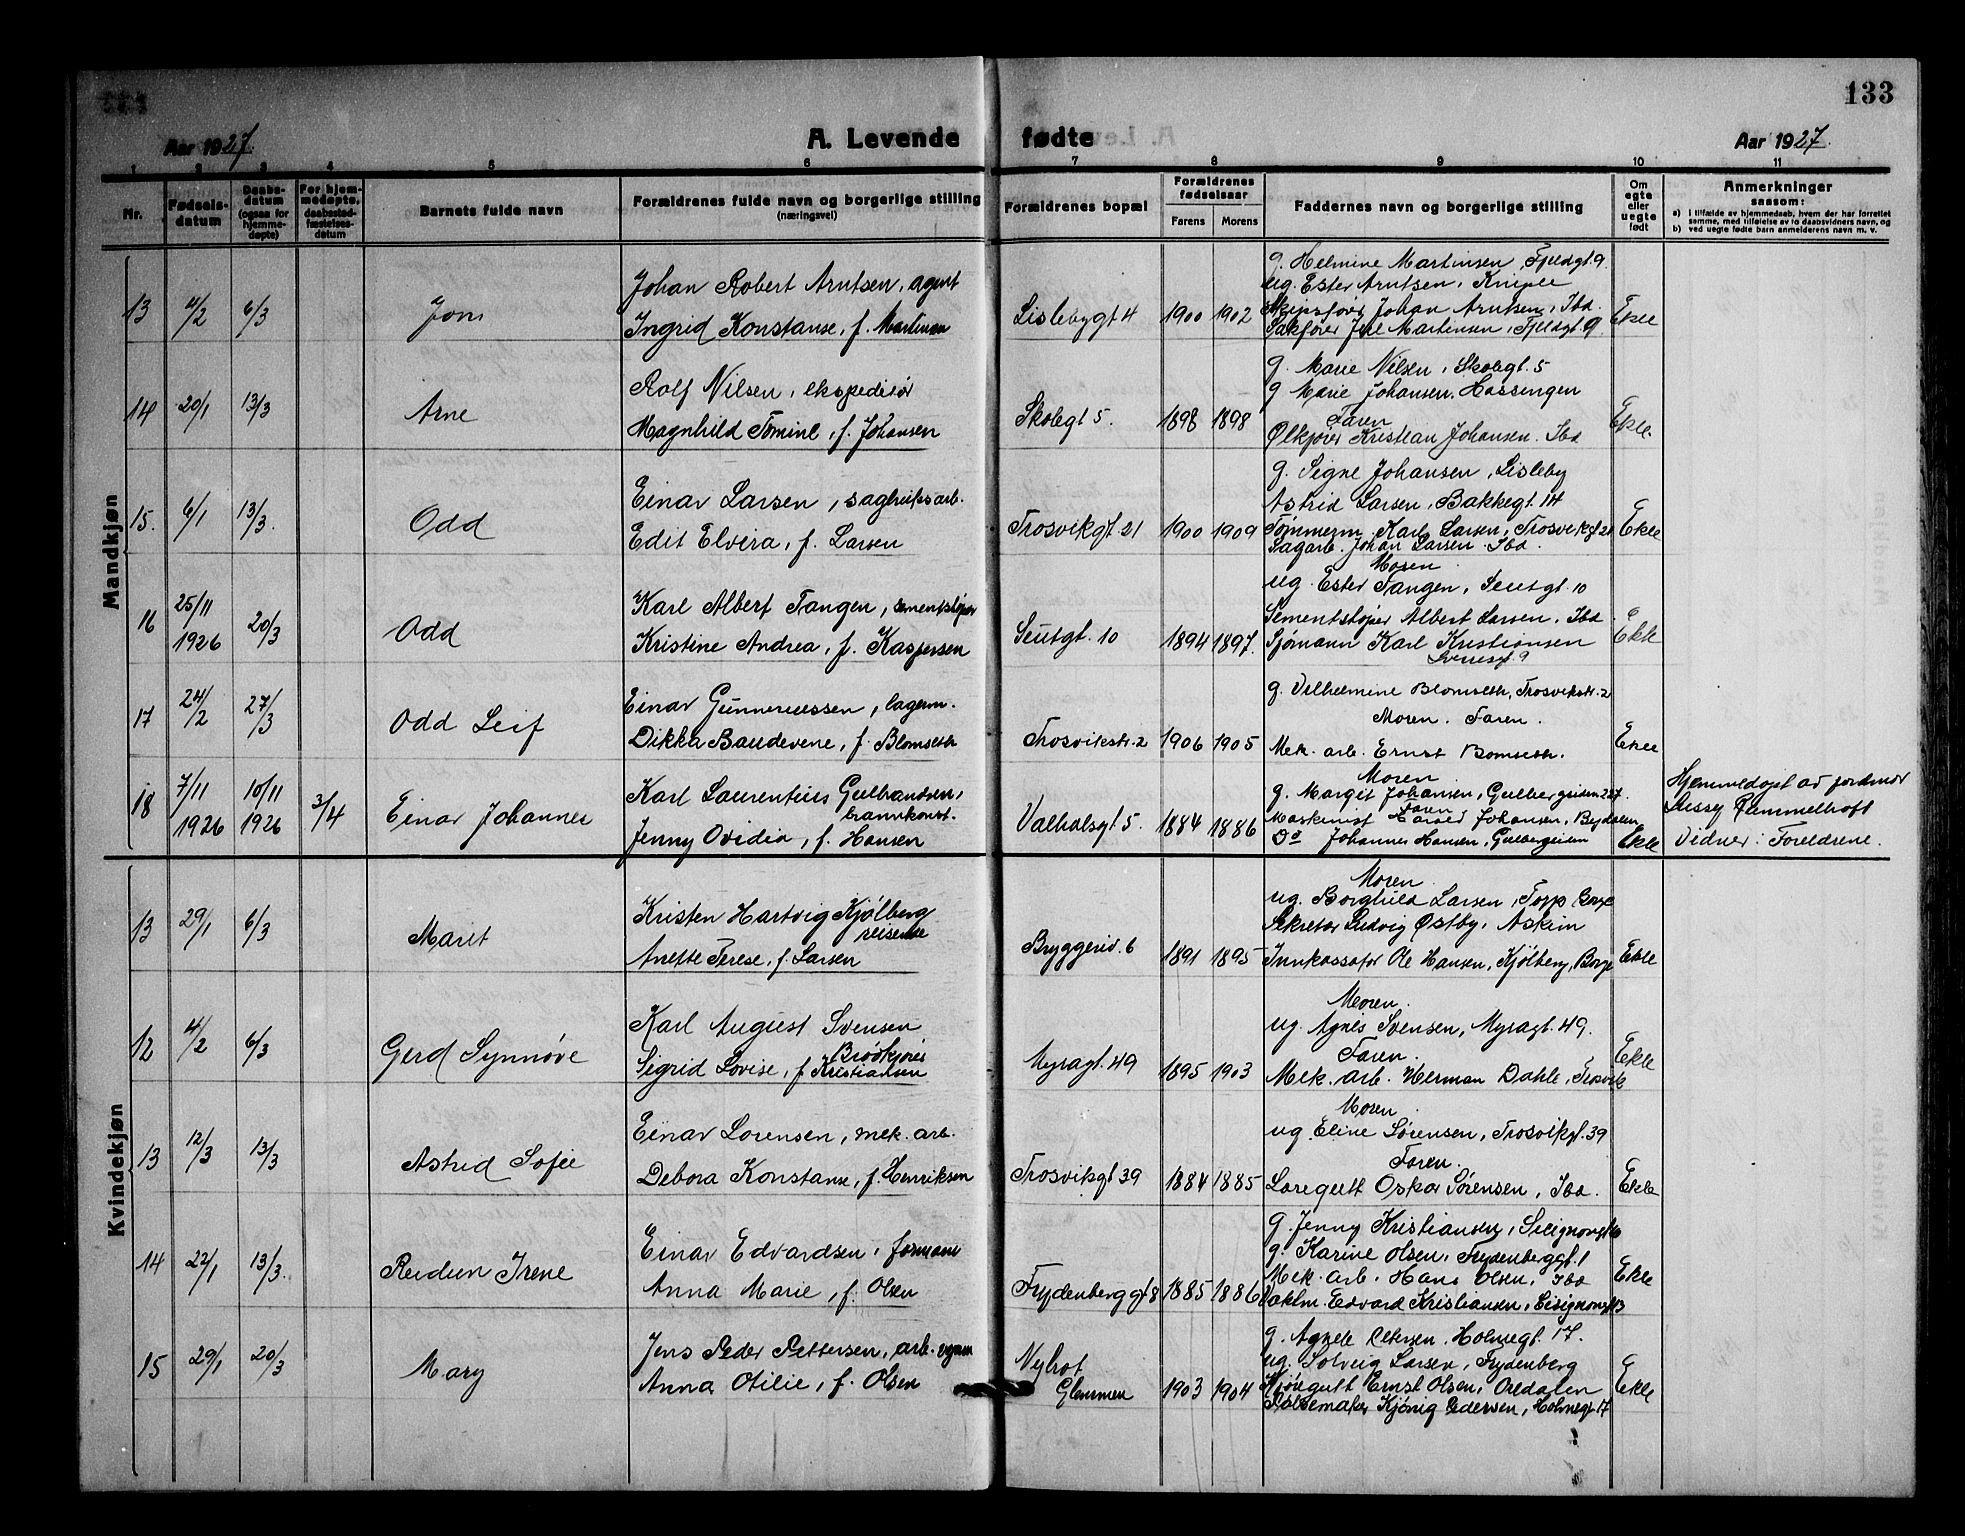 133
Aar 1927.
A. Levende fødte
Aar 1927.
1 2 3 4 5 6 7 8 9 10 11
Nr.
Fødsels-
datum
Daabs-
datum
(ogsaa for
hjemme-
døpte)
For hjem-
medøpte,
daabsstad-
fæstelses-
datum
Barnets fulde navn
Forældrenes fulde navn og borgerlige stilling
(næringsvei)
Forældrenes bopæl
Forældrenes
fødselsaar
Farens Morens
Faddernes navn og borgerlige stilling
Om
egte
eller
uegte
født
Anmerkninger
saasom:
a) i tilfælde av hjemmedaab, hvem der har forrettet
samme, med tilføielse av to daabsvidners navn, og
b) ved uegte fødte barn anmelderens navn m. v.
Mandkjøn
13 4/2 6/3
Johan Robert Arntsen, agent
Ingrid Konstanse, f. Martinsen
Lislebygt 4 1900 1902
g. Helmine Martinsen, Fjeldgt. 9.
ug. Ester Arntsen, Kniple
Skipsfør. Johan Arntsen, Ibd.
Sakfører Juel Martinsen, Fjeldgt. 9
Ekte
14 20/1 13/3 Arne
Rolf Nilsen, ekspeditør
Magnhild Tomine, f. Johansen
Skolegt 5. 1898 1898
g. Marie Nilsen, Skolegt. 5
g Marie Johansen, Hassengen
Faren
Ølkjører Kristian Johansen. Ibd
Ekte.
15. 6/1 13/3. Odd
Einar Larsen, sagbruksarb.
Edit Elvira, f. Larsen
Trosvikgt 21 1900 1909
g. Signe Johansen, Lisleby
Astrid Larsen, Bakkegt. 14
Tømmerm. Karl Larsen, Trosvikgt 21
Sagarb. Johan Larsen Ibd.
Ekte
16 25/11 1926 20/3 Odd
Karl Albert Tangen, sementstøper
Kristine Andrea, f. Kaspersen
Seutgt. 10 1894 1897.
Moren
ug. Ester Tangen, Seutgt. 10
Sementstøper Albert Larsen, Ibd.
Sjømann Karl Kristiansen
Sverresgt. 9
Ekte
17 24/2 27/3 Odd Leif
Einar Gunnerussen, lagerm.
Dikka Baudevene, f. Blomseth
Trosvikstr. 2 1906 1905
g. Vilhelmine Blomseth, Trosvikstr. 2
Moren. Faren.
Mek. arb. Ernst Bomseth.
Ekte
18 7/11 1926 10/11 1926 3/4 Einar Johannes
Karl Laurentius Gulbrandsen,
brannkonst.
Jenny Ovidia, f. Hansen
Valhalsgt 5. 1884 1886
Moren
g. Margit Johansen, Gulbergsiden 227.
Faren
Maskinist Harald Johansen, Bydalen
Do Johannes Hansen, Gulbergsiden
Ekte
Hjemmedøpt av jordmor
Lussy Rammelhoft
Vidner: Foreldrene.
Kvindekjøn
13 29/1 6/3 Marit
Kristen Hartvig Kjölberg
reisende
Anette Terese, f. Larsen
Bryggeriv. 6 1891 1895
Moren
ug. Borghild Larsen, Torp Borge
Sekretær Ludvig Østby, Askim
Innkassatør Ole Hansen, Kjölberg, Borge
Ekte
12 4/2 6/3 Gerd Synnøve
Karl August Svensen
Brødkjører
Sigrid Lovise, f. Kristiansen
Myragt. 49 1895 1903
Moren.
ug. Agnes Svensen, Myragt. 49.
Faren.
Mek. arb. Herman Dahle, Trosvik
Ekte
13 12/3 13/3 Astrid Sofie
Einar Lorensen, mek. arb.
Debora Konstanse, f. Henriksen
Trosvikgt 39 1884 1885
Moren.
ug. Eline Sørensen, Trosvikgt. 39
Faren.
Laregutt Oskar Sørensen, Ibd.
Ekte
14 22/1 13/3. Reidun Irene
Einar Edvardsen, formann
Anna Marie, f. Olsen
Frydenberg gt 8 1885 1886
g. Jenny Kristiansen,
g. Karine Olsen, Frydenberggt. 1
Mek. arb. Hans Olsen, Ibd
Edvard Kristiansen,
Ekte
15 29/1 20/3 Mary
Jens Peder Pettersen, arb.
Anna Otilie, f. Olsen
Nybrot
Glemmen 1903 1904
g. Agnete Petersen. Holmegt. 17.
ug. Solveig Larsen, Frydenberg
Kjøregutt Ernst Olsen, Oredalen
Pølsemaker Kjønig Pedersen, Holmegt 17
Ekte